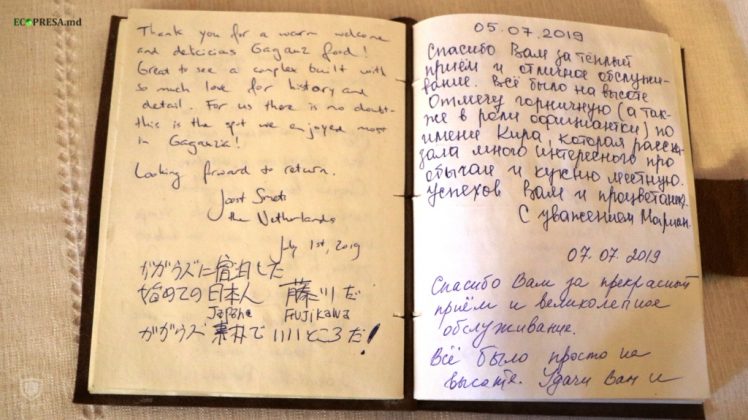 ECOPRESA.md
Thank you for a warm welcome
and delicious Gagauz food!
Great to see a complex built with
so much love for history and
detail. For us there is no doubt-
this is the spot we enjoyed most
in Gagauzia!
Looking forward to return.
Joost Smets
the Netherlands
July 1st, 2019
ガガウズに宿泊した
始めての日本人 藤川だ
Japane FUJIKAWA
ガガウズ 素朴で いいところだ!
05.07.2019
Спасибо Вам за тёплый
приём и отличное обслужи-
вание. Всё было на высоте
Отмечу горничную (а так-
же в роли официантки) по
имени Кира, которая расск-
зала много интересного про
обычаи и кухню местную.
Успехов Вам и процветания.
С уважением Мариан.
07.07.2019
Спасибо Вам за прекрасный
приём и великолепное
обслуживание.
Всё было просто на
высоте. Удачи Вам и